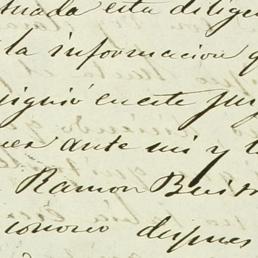 tuada esta dilige
la informacion q
siguió en este juz
ues ante mi y t
Ramon Buitr
conozco despues